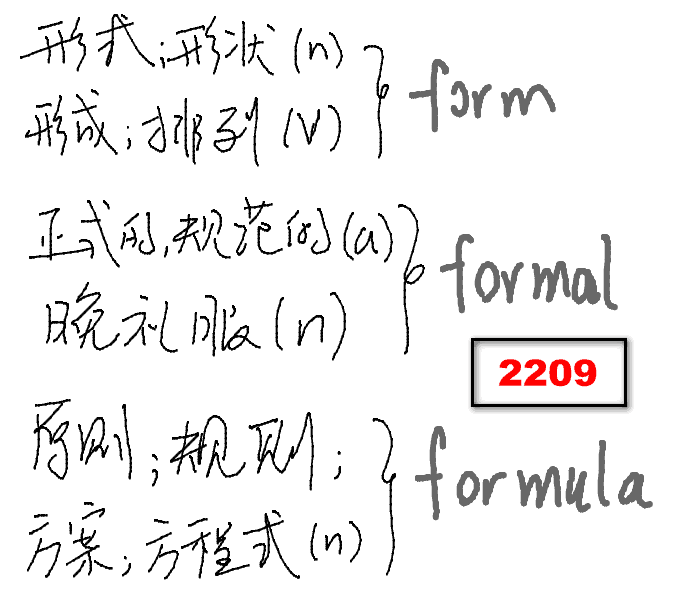 形式；形状(n)
形成；排列(V)
form
正式的，规范的(a)
晚礼服(n)
formal
2209
原则；规则；
方案；方程式(n)
formula